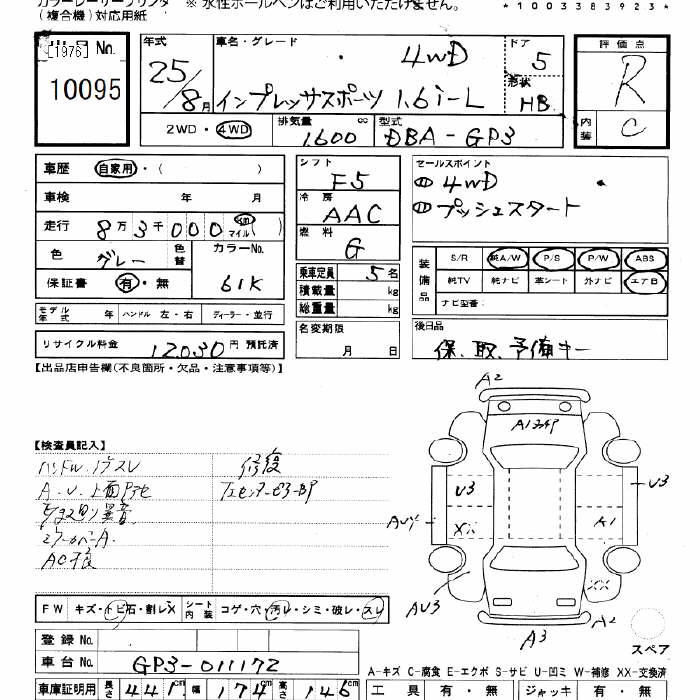 カラーレーザープリンタ ※ 水性ボールペンはご利用いただけません。
(複合機)対応用紙
*1003383923*
[1976] No.
10095
年式 車名・グレード ドア 評価点
25/8月 4WD 5 R
インプレッサスポーツ 1.6i-L 形状 HB
2WD・4WD 排気量 1600 cc 型式 DBA-GP3 内装 C
車歴 自家用・( )
車検 年 月
走行 8万3千000 km マイル( )
色 グレー 色替 カラーNo. 61K
保証書 有・無
シフト F5
冷房 AAC
燃料 G
乗車定員 5名
積載量 kg
総重量 kg
名変期限 月 日
セールスポイント
① 4WD
① プッシュスタート
装備品 S/R 純A/W P/S P/W ABS
純TV 純ナビ 革シート 外ナビ エアB
ナビ型番:
後日品
保、取、予備キー
モデル年式 年 ハンドル 左・右 ディーラー・並行
リサイクル料金 12030円 預託済
【出品店申告欄(不良箇所・欠品・注意事項等)】
【検査員記入】
修復
A2
A1
U3
U3
XX
AU3
A2
A3
FW キズ・トビ石・割レX シート内装 コゲ・穴・汚レ・シミ・破レ・スレ
登録 No.
車台 No. GP3-011172
車庫証明用 長さ 441cm 幅 174cm 高さ 146cm
スペア
A-キズ C-腐食 E-エクボ S-サビ U-凹ミ W-補修 XX-交換済
工具 有・無 ジャッキ 有・無